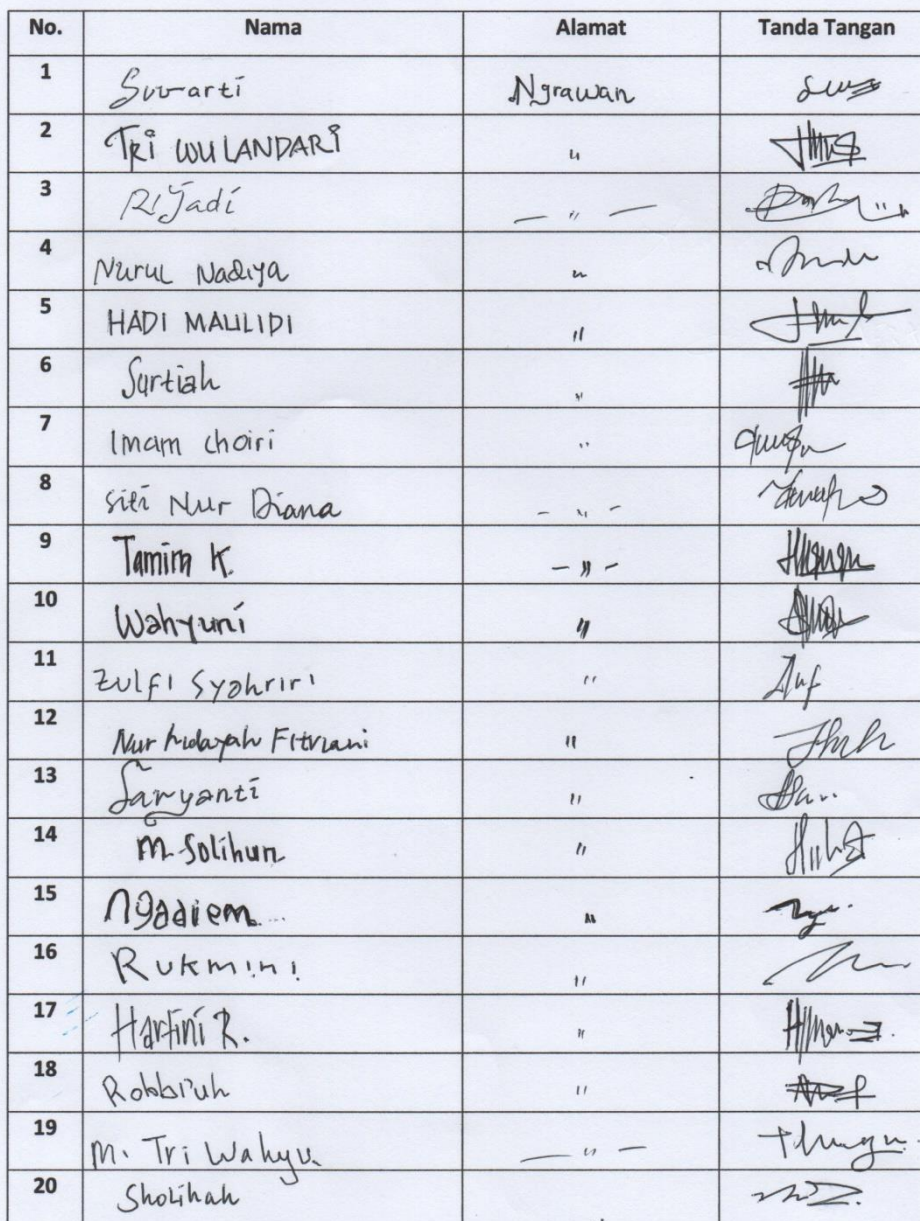 No. Nama Alamat Tanda Tangan
1 Suwarti Ngrawan
2 TRI WULANDARI "
3 Rijadi — " —
4 Nurul Nadiya "
5 HADI MAULIDI "
6 Surtiah "
7 Imam choiri "
8 Siti Nur Diana - " -
9 Tamim K. - " -
10 Wahyuni "
11 Zulfi Syahriri "
12 Nur hidayah Fitriani "
13 Saryanti "
14 M. Solihun "
15 Ngadiem "
16 Rukmini "
17 Hartini R. "
18 Robbi'uh "
19 M. Tri Wahyu. — " —
20 Sholihah